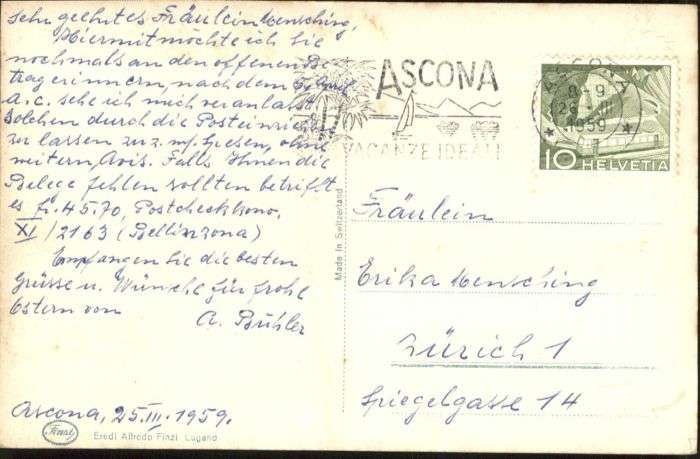 Sehr geehrtes Fräulein Mensching,
Hiermit möchte ich Sie
nochmals an den offenen Be-
trag erinnern, nach dem 5. April
a.c. sehe ich mich veranlasst
solchen durch die Posteinrich
zu lassen zu z. m/ Spesen, ohne
weitern, Avis. Falls Ihnen die
Belege fehlen sollten betrifft
es fr. 45.70, Postcheckkono.
XI/2163 (Bellinzona)
Empfangen Sie die besten
Grüsse u. Wünche für frohe
Ostern von
A. Bühler
Ascona, 25.III.1959.
Finzi
Eredi Alfredo Finzi Lugano
Made in Switzerland
ASCONA
VACANZE IDEALI
ASCONA
1959
10 HELVETIA
Fräulein
Erika Mensching
Zürich 1
Spiegelgasse 14